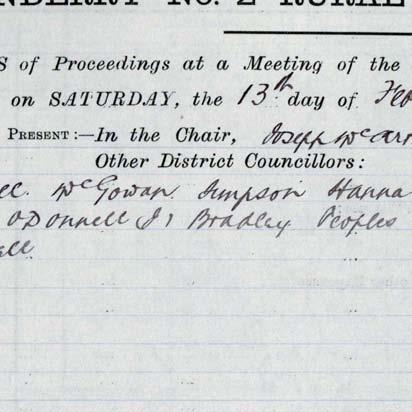 NDERRY No. 2 RURAL
S of Proceedings at a Meeting of the
on SATURDAY, the 13th day of Feb
PRESENT:—In the Chair, Joseph McCarr
Other District Councillors:
McGowan Simpson Hanna
O'Donnell J, Bradley Peoples